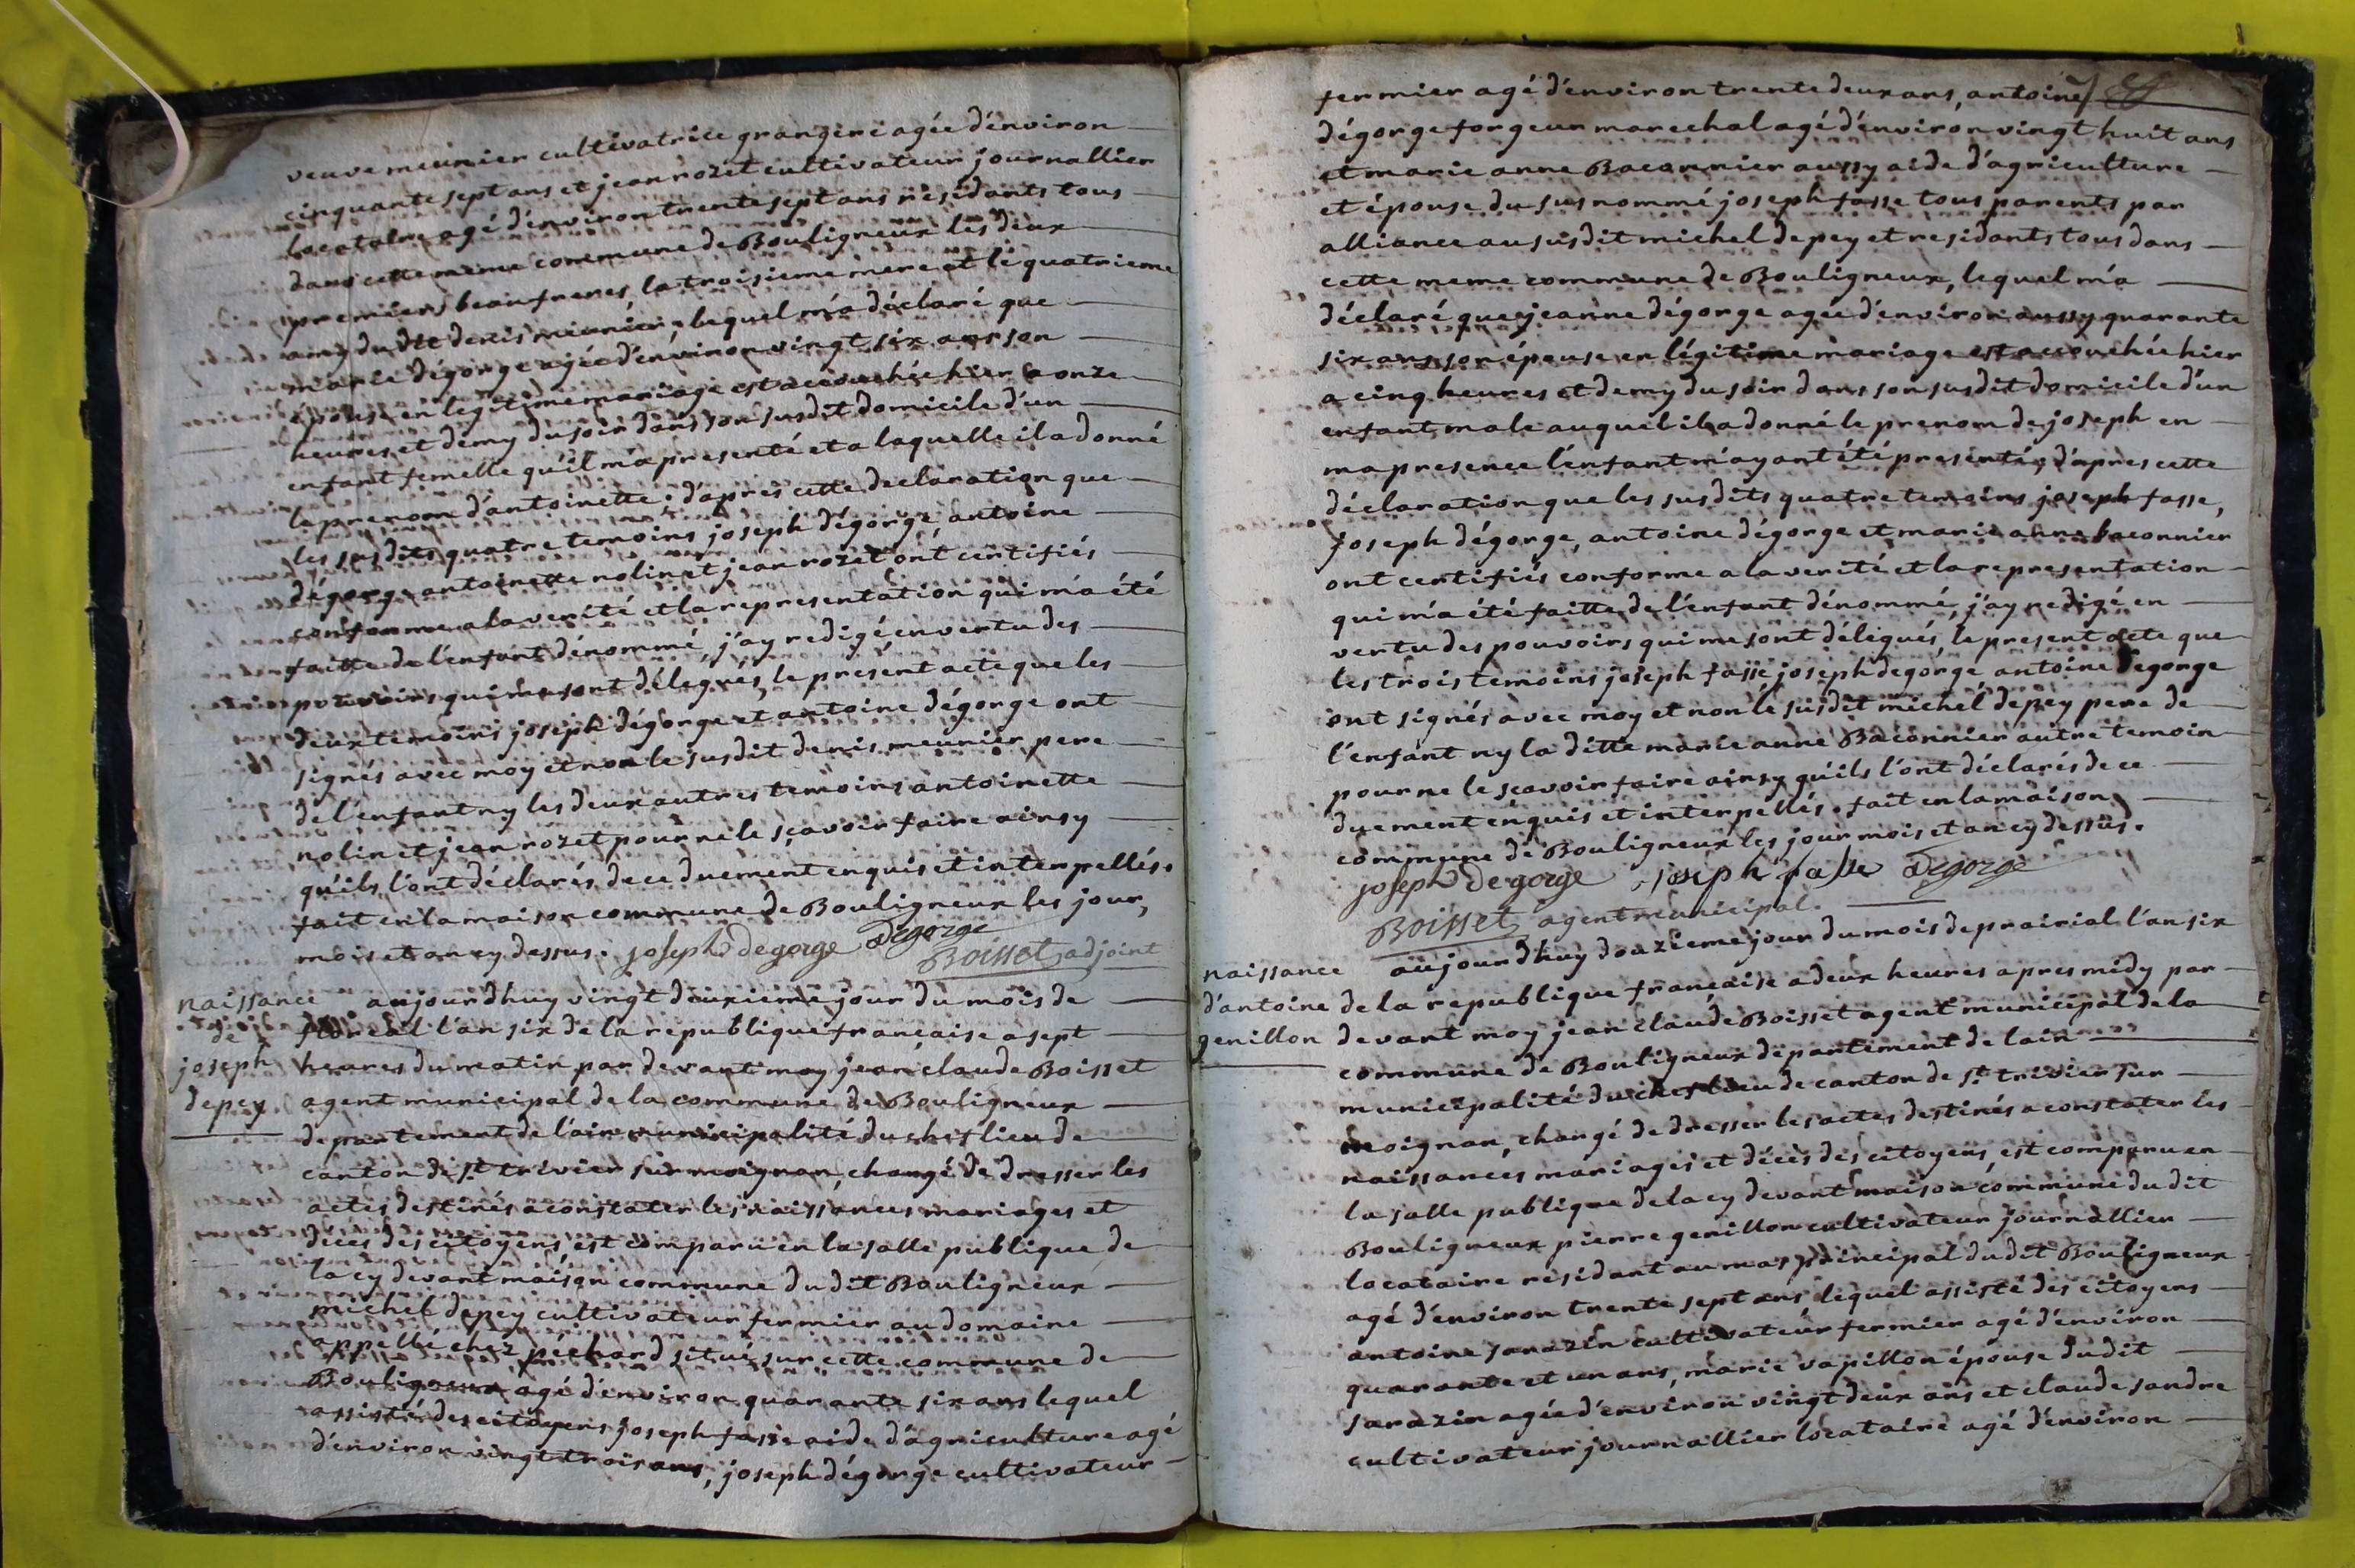 veuve meunier cultivatrice grangere agée d'environ
cinquante sept ans et jean rozet cultivateur journallier
locataire agé d'environ trente sept ans residants tous
dans cette meme commune de Bouligneux les deux
premiers beaufreres, la troisieme mere et le quatrieme
amy du dit denis meunier, lequel m'a déclaré que
marie dégorge agée d'environ vingt six ans son
épouse en legitime mariage est accouchée hier a onze
heures et demy du soir dans son susdit domicile d'un
enfant femelle qu'il m'a presenté et a laquelle il a donné
le prenom d'antoinette. d'après cette declaration que
les susdits quatre temoins joseph dégorge, antoine
dégorge antoinette nolin et jean rozet ont certifiés
conforme a la verité et la representation qui m'a été
faitte de l'enfant dénommé, j'ay redigé en vertu des
pouvoirs qui me sont délegués, le present acte que les
deux temoins joseph dégorge et antoine dégorge ont
signés avec moy et non le susdit denis meunier pere
de l'enfant ny les deux autres temoins antoinette
nolin et jean rozet pour ne le sçavoir faire ainsy
qu'ils l'ont déclarés de ce duement enquis et interpellés.
fait en la maison commune de Bouligneux les jour,
mois et an cy dessus. joseph degorge Degorge
Boisset adjoint
naissance
de
joseph
depey
aujourdhuy vingt deuxieme jour du mois de
floreal l'an six de la republique française a sept
heures du matin par devant moy jean claude Boisset
agent municipal de la commune de Bouligneux
departement de l'ain municipalité du chef lieu de
canton de st trivier sur moignan, chargé de dresser les
actes destinés a constater les naissances mariages et
décès des citoyens, est comparu en la salle publique de
la cy devant maison commune du dit Bouligneux
michel depey cultivateur fermier au domaine
appellé chez péchard situé sur cette commune de
Bouligneux agé d'environ quarante six ans lequel
assisté des citoyens joseph fasse aide d'agriculture agé
d'environ vingt trois ans, joseph dégorge cultivateur
fermier agé d'environ trente deux ans, antoine
dégorge forgeur marechal agé d'environ vingt huit ans
et marie anne Baconnier aussy aide d'agriculture
et épouse du susnommé joseph fasse tous parents par
alliance au susdit michel depey et residants tous dans
cette meme commune de Bouligneux, lequel m'a
déclaré que jeanne dégorge agée d'environ aussy quarante
six ans son épouse en légitime mariage est accouchée hier
a cinq heures et demy du soir dans son susdit domicile d'un
enfant male auquel il a donné le prenom de joseph en
ma presence l'enfant m'ayant été presenté, d'apres cette
déclaration que les susdits quatre temoins joseph fasse,
joseph dégorge, antoine dégorge et marie anne baconnier
ont certifiés conforme a la verité et la representation
qui m'a été faitte de l'enfant dénommé, j'ay redigé en
vertu des pouvoirs qui me sont délegués, le present acte que
les trois temoins joseph fasse joseph degorge antoine degorge
ont signés avec moy et non le susdit michel depey pere de
l'enfant ny la ditte marie anne Baconnier autre temoin
pour ne le sçavoir faire ainsy qu'ils l'ont déclarés de ce
duement enquis et interpellés. fait en la maison
commune de Bouligneux les jour mois et an cy dessus.
joseph degorge joseph fasse Degorge
Boisset agent municipal.
naissance
d'antoine
genillon
aujourdhuy douzieme jour du mois de prairial l'an six
de la republique française a deux heures apres midy par
devant moy jean claude Boisset agent municipal de la
commune de Bouligneux departement de l'ain
municipalité du chef lieu de canton de st trivier sur
moignan, chargé de dresser les actes destinés a constater les
naissances mariages et décès des citoyens, est comparu en
la salle publique de la cy devant maison commune du dit
Bouligneux pierre genillon cultivateur journallier
locataire residant au mas principal du dit Bouligneux
agé d'environ trente sept ans lequel assisté des citoyens
antoine sarazin cultivateur fermier agé d'environ
quarante et un ans, marie vapillon épouse du dit
sarazin agée d'environ vingt deux ans et claude sandre
cultivateur journallier locataire agé d'environ